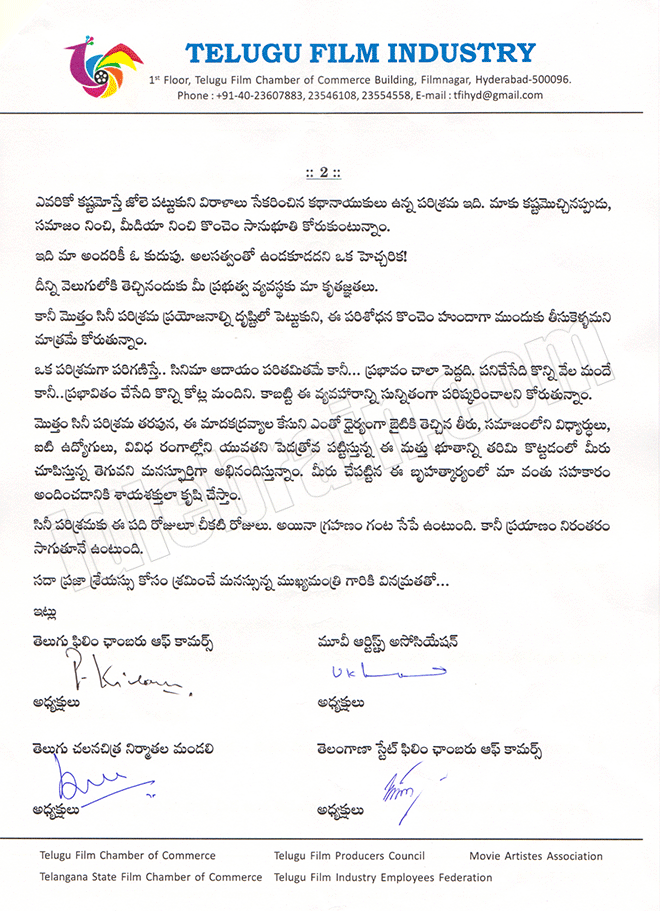 TELUGU FILM INDUSTRY
1st Floor, Telugu Film Chamber of Commerce Building, Filmnagar, Hyderabad-500096.
Phone : +91-40-23607883, 23546108, 23554558, E-mail : tfihyd@gmail.com
:: 2 ::
ఎవరికో కష్టమొస్తే జోలె పట్టుకుని విరాళాలు సేకరించిన కథానాయకులు ఉన్న పరిశ్రమ ఇది. మాకు కష్టమొచ్చినప్పుడు,
సమాజం నించి, మీడియా నించి కొంచెం సానుభూతి కోరుకుంటున్నాం.
ఇది మా అందరికీ ఓ కుదుపు. అలసత్వంతో ఉండకూడదని ఒక హెచ్చరిక!
దీన్ని వెలుగులోకి తెచ్చినందుకు మీ ప్రభుత్వ వ్యవస్థకు మా కృతజ్ఞతలు.
కానీ మొత్తం సినీ పరిశ్రమ ప్రయోజనాల్ని దృష్టిలో పెట్టుకుని, ఈ పరిశోధన కొంచెం హుందాగా ముందుకు తీసుకెళ్ళమని
మాత్రమే కోరుతున్నాం.
ఒక పరిశ్రమగా పరిగణిస్తే.. సినిమా ఆదాయం పరితమితమే కానీ... ప్రభావం చాలా పెద్దది. పనిచేసేది కొన్ని వేల మందే
కానీ..ప్రభావితం చేసేది కొన్ని కోట్ల మందిని. కాబట్టి ఈ వ్యవహారాన్ని సున్నితంగా పరిష్కరించాలని కోరుతున్నాం.
మొత్తం సినీ పరిశ్రమ తరపున, ఈ మాదకద్రవ్యాల కేసుని ఎంతో ధైర్యంగా బైటికి తెచ్చిన తీరు, సమాజంలోని విధ్యార్థులు,
ఐటి ఉద్యోగులు, వివిధ రంగాల్లోని యువతని పెడత్రోవ పట్టిస్తున్న ఈ మత్తు భూతాన్ని తరిమి కొట్టడంలో మీరు
చూపిస్తున్న తెగువని మనస్ఫూర్తిగా అభినందిస్తున్నాం. మీరు చేపట్టిన ఈ బృహత్కార్యంలో మా వంతు సహకారం
అందించడానికి శాయశక్తులా కృషి చేస్తాం.
సినీ పరిశ్రమకు ఈ పది రోజులూ చీకటి రోజులు. అయినా గ్రహణం గంట సేపే ఉంటుంది. కానీ ప్రయాణం నిరంతరం
సాగుతూనే ఉంటుంది.
సదా ప్రజా శ్రేయస్సు కోసం శ్రమించే మనస్సున్న ముఖ్యమంత్రి గారికి వినమ్రతతో...
ఇట్లు
తెలుగు ఫిలిం ఛాంబరు ఆఫ్ కామర్స్ మూవీ ఆర్టిస్ట్స్ అసోసియేషన్
P. Kiran
అధ్యక్షులు అధ్యక్షులు
తెలుగు చలనచిత్ర నిర్మాతల మండలి తెలంగాణా స్టేట్ ఫిలిం ఛాంబరు ఆఫ్ కామర్స్
అధ్యక్షులు అధ్యక్షులు
Telugu Film Chamber of Commerce Telugu Film Producers Council Movie Artistes Association
Telangana State Film Chamber of Commerce Telugu Film Industry Employees Federation
idlebrain.com